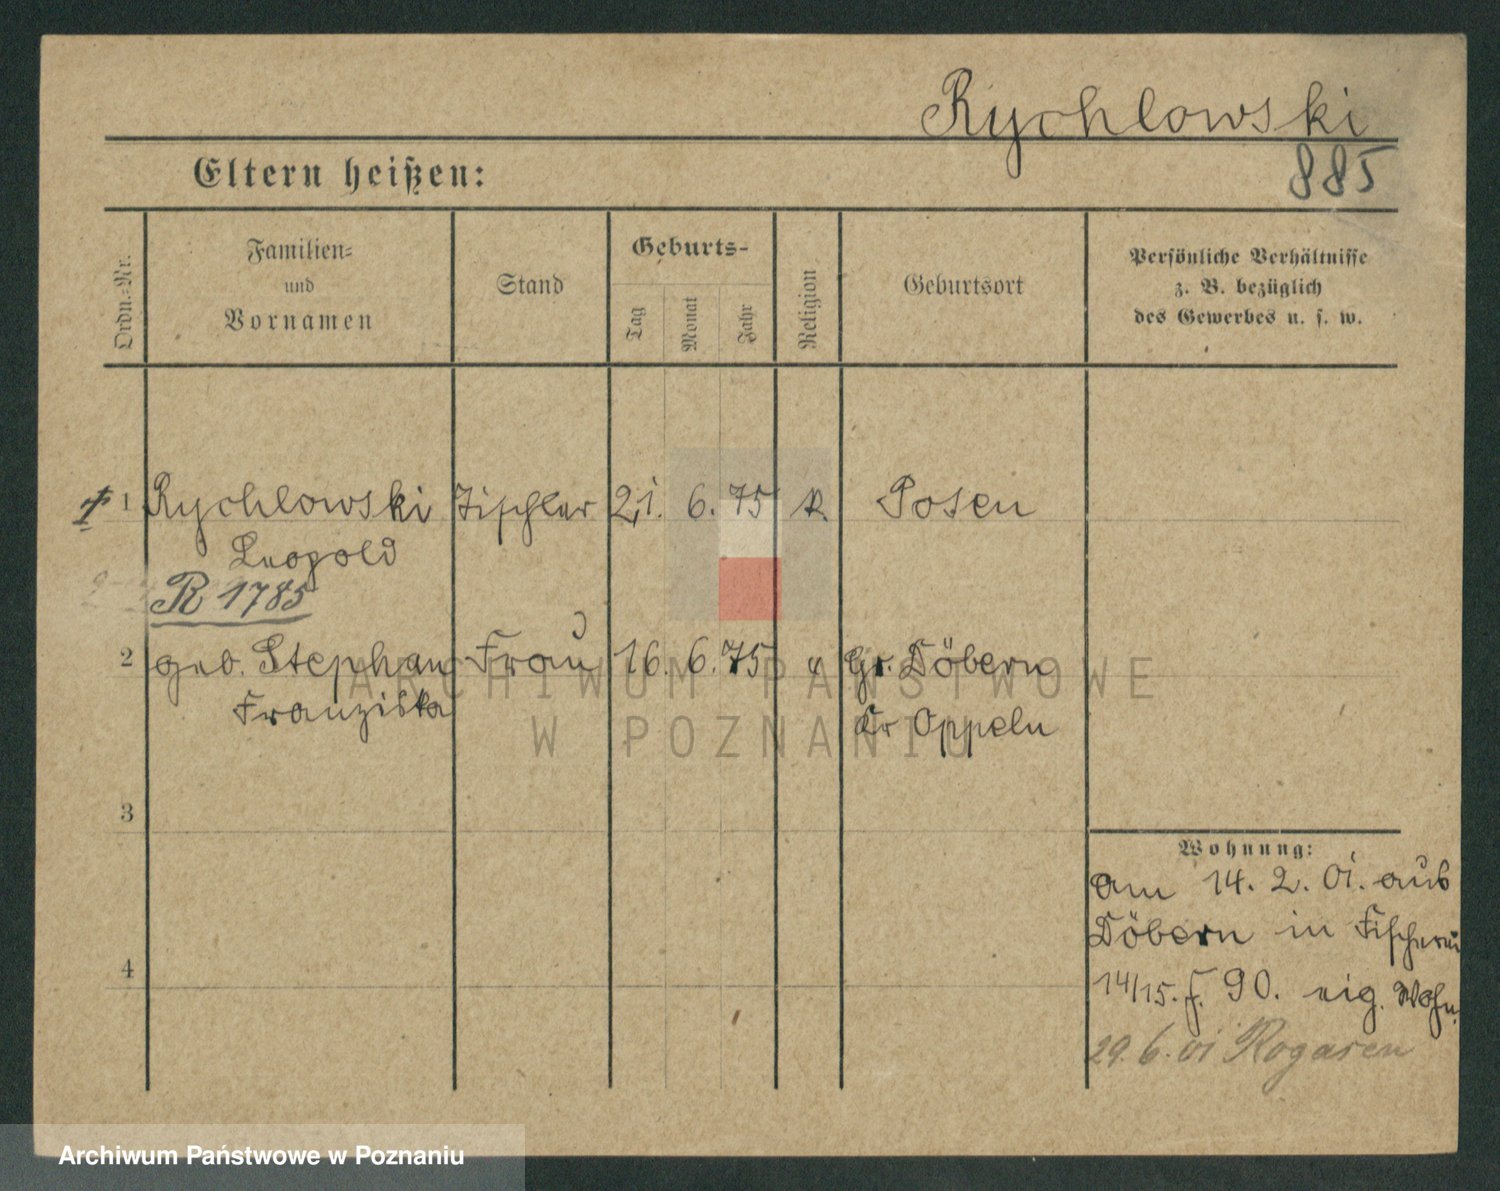 Rychlowski
885
Eltern heißen:
Ordn.-Nr.
Familien-
und
Vornamen
Stand
Geburts-
Tag
Monat
Jahr
Religion
Geburtsort
Persönliche Verhältnisse
z. B. bezüglich
des Gewerbes u. s. w.
1 Rychlowski Tischler 21. 6. 75 k. Posen
Leopold
R 1785
2 geb. Stephan Frau 16. 6. 75 " Gr. Döbern
Franziska Kr Oppeln
3
4
Wohnung:
am 14. 2. 01. aus
Döbern in Fischerei
14/15. f. 90. eig. Wohn.
29. 6. 01 Rogasen
ARCHIWUM PAŃSTWOWE
W POZNANIU
Archiwum Państwowe w Poznaniu